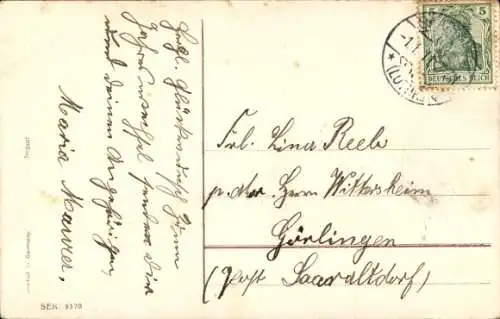 Hrzl. Glückwunsch zum
Jahreswechsel sendet Dir
und deinen Angehörigen,
Maria Maurer.
Frl. Lina Reeb
p. adr. Herrn Wittersheim
Görlingen
(Post Saaraltdorf)
5
DEUTSCHES REICH
SEK. 5370